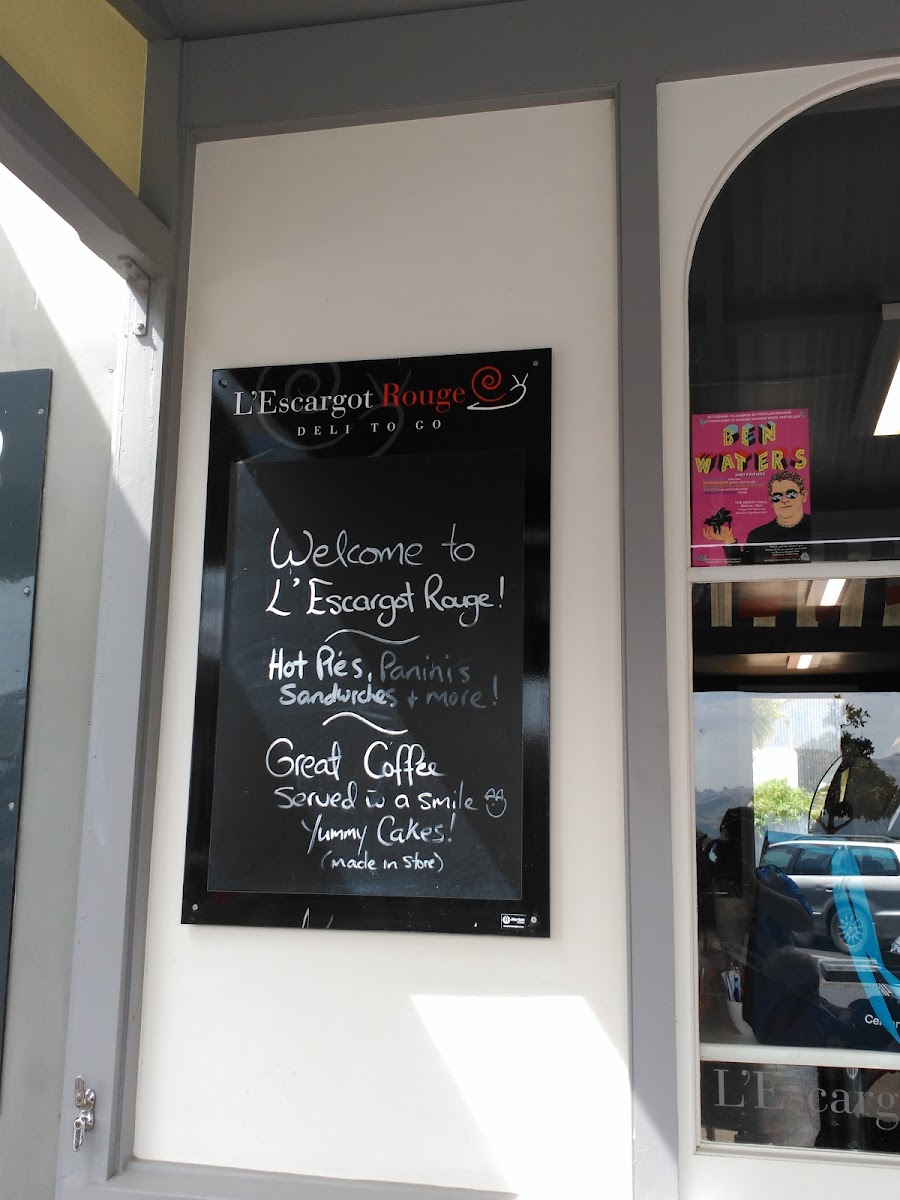 L'Escargot Rouge
DELI TO GO
Welcome to
L'Escargot Rouge!
Hot Pies, Panini's
Sandwiches + more!
Great Coffee
Served w a smile
Yummy Cakes!
(made in store)
BEN
WATERS
AND FRIENDS
L'Escarg